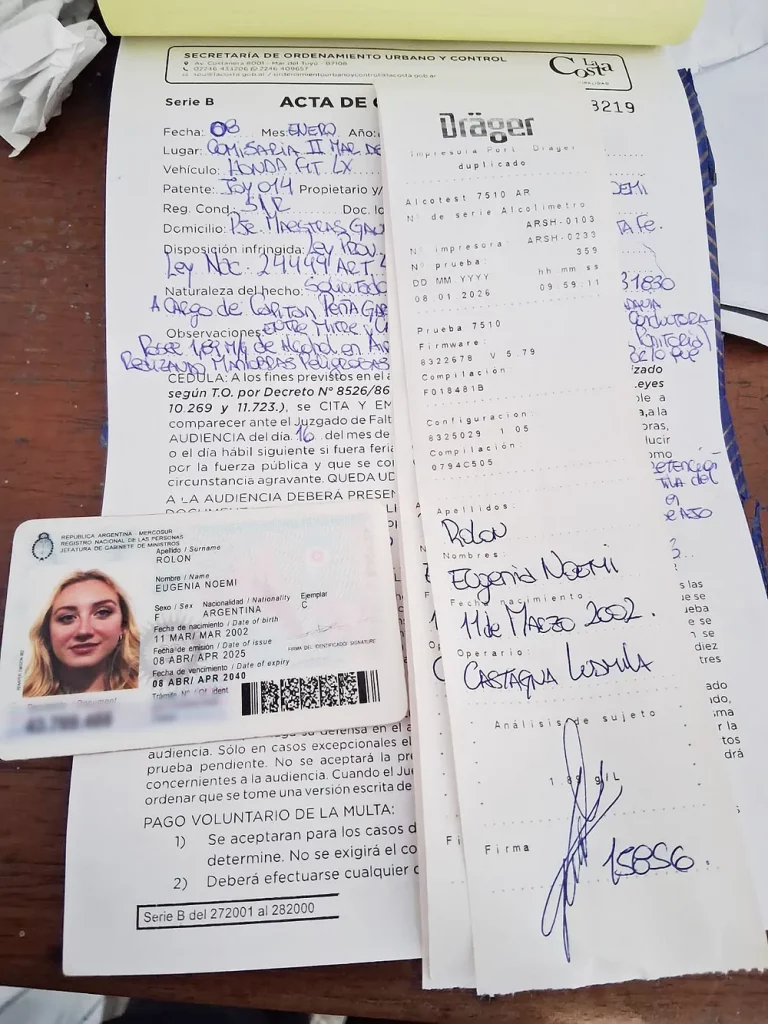 SECRETARÍA DE ORDENAMIENTO URBANO Y CONTROL
Av. Costanera 8001 - Mar del Tuyú - B7108
La Costa
Serie B ACTA DE
3219
Fecha: 08 Mes: ENERO Año:
Lugar: COMISARIA II MAR DE
Vehículo: HONDA FIT LX
Patente: JOY 014 Propietario y/
Reg. Cond.: S/R Doc. Id
Domicilio:
Disposición infringida: Ley PROV.
Ley NAC. 24449 ART.
Naturaleza del hecho: Solicitado
A CARGO de CAPITAN PEÑA
Observaciones: ENTRE MITRE Y
Posee 1,89 M/g de Alcohol en
REALIZANDO MANIOBRAS PELIGROSAS
CÉDULA: A los fines previstos en el a
según T.O. por Decreto N° 8526/86
10.269 y 11.723.), se CITA Y EM
comparecer ante el Juzgado de Falt
AUDIENCIA del día 16 del mes de
o el día hábil siguiente si fuera feria
por la fuerza pública y que se co
circunstancia agravante. QUEDA UD
A LA AUDIENCIA DEBERÁ PRESEN
TA FE.
31830
CONDUCTORA
zado
eyes
ble a
a,a la
oras,
ducir
omo
Dräger
Impresora Port. Dräger
duplicado
Alcotest 7510 AR
N° de serie Alcolimetro
ARSH-0103
N° impresora: ARSH-0233
N° prueba: 359
DD MM YYYY hh mm ss
08.01.2026 09 59.11
Prueba 7510
Firmware:
8322678 V 5.79
Compilación:
F018481B
Configuracion:
8325029 1 05
Compilación:
0794C505
Apellidos:
ROLON
Nombres:
EUGENIA NOEMI
Fecha nacimiento
11 de MARZO 2002.
Operario:
CASTAGNA LUDMILA
Análisis de sujeto
1.89 g/L
Firma
15856
REPUBLICA ARGENTINA - MERCOSUR
REGISTRO NACIONAL DE LAS PERSONAS
JEFATURA DE GABINETE DE MINISTROS
Apellido / Surname
ROLON
Nombre / Name
EUGENIA NOEMI
Sexo / Sex Nacionalidad / Nationality Ejemplar
F ARGENTINA C
Fecha de nacimiento / Date of birth
11 MAR/ MAR 2002
Fecha de emisión / Date of issue
08 ABR/ APR 2025
FIRMA DEL IDENTIFICADO/ SIGNATURE
Fecha de vencimiento / Date of expiry
08 ABR/ APR 2040
Trámite N° / Of. ident
su defensa en el a
audiencia. Sólo en casos excepcionales el
prueba pendiente. No se aceptará la pre
concernientes a la audiencia. Cuando el Jue
ordenar que se tome una versión escrita de
PAGO VOLUNTARIO DE LA MULTA:
1) Se aceptaran para los casos d
determine. No se exigirá el co
2) Deberá efectuarse cualquier
Serie B del 272001 al 282000
s las
ue se
ueba
e se
n se
diez
tres
ado
do,
ma
r la
tos
drá